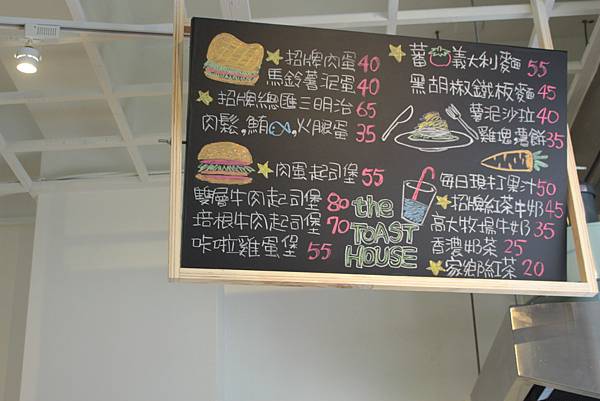 招牌肉蛋 40
馬鈴薯泥蛋 40
招牌總匯三明治 65
肉鬆,鮪,火腿蛋 35
肉蛋起司堡 55
雙層牛肉起司堡 80
培根牛肉起司堡 70
咔啦雞蛋堡 55
the
TOAST
HOUSE
蕃義大利麵 55
黑胡椒鐵板麵 45
薯泥沙拉 40
雞塊,薯餅 35
每日現打果汁 50
招牌紅茶牛奶 45
高大牧場牛奶 35
香濃奶茶 25
家鄉紅茶 20